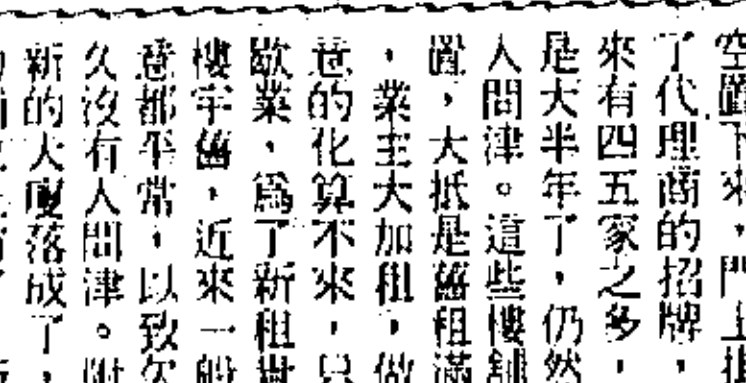 空置下來，門上
了代理商的招牌，
來有四五家之多，
是大半年了，仍然
人問津。這些樓舖
置，大抵是舊租滿
，業主大加租，做
意的化算不來，只
歇業，爲了新租貴
樓宇舊，近來一般
意都平常，以致欠
久沒有人問津。附
新的大廈落成了，